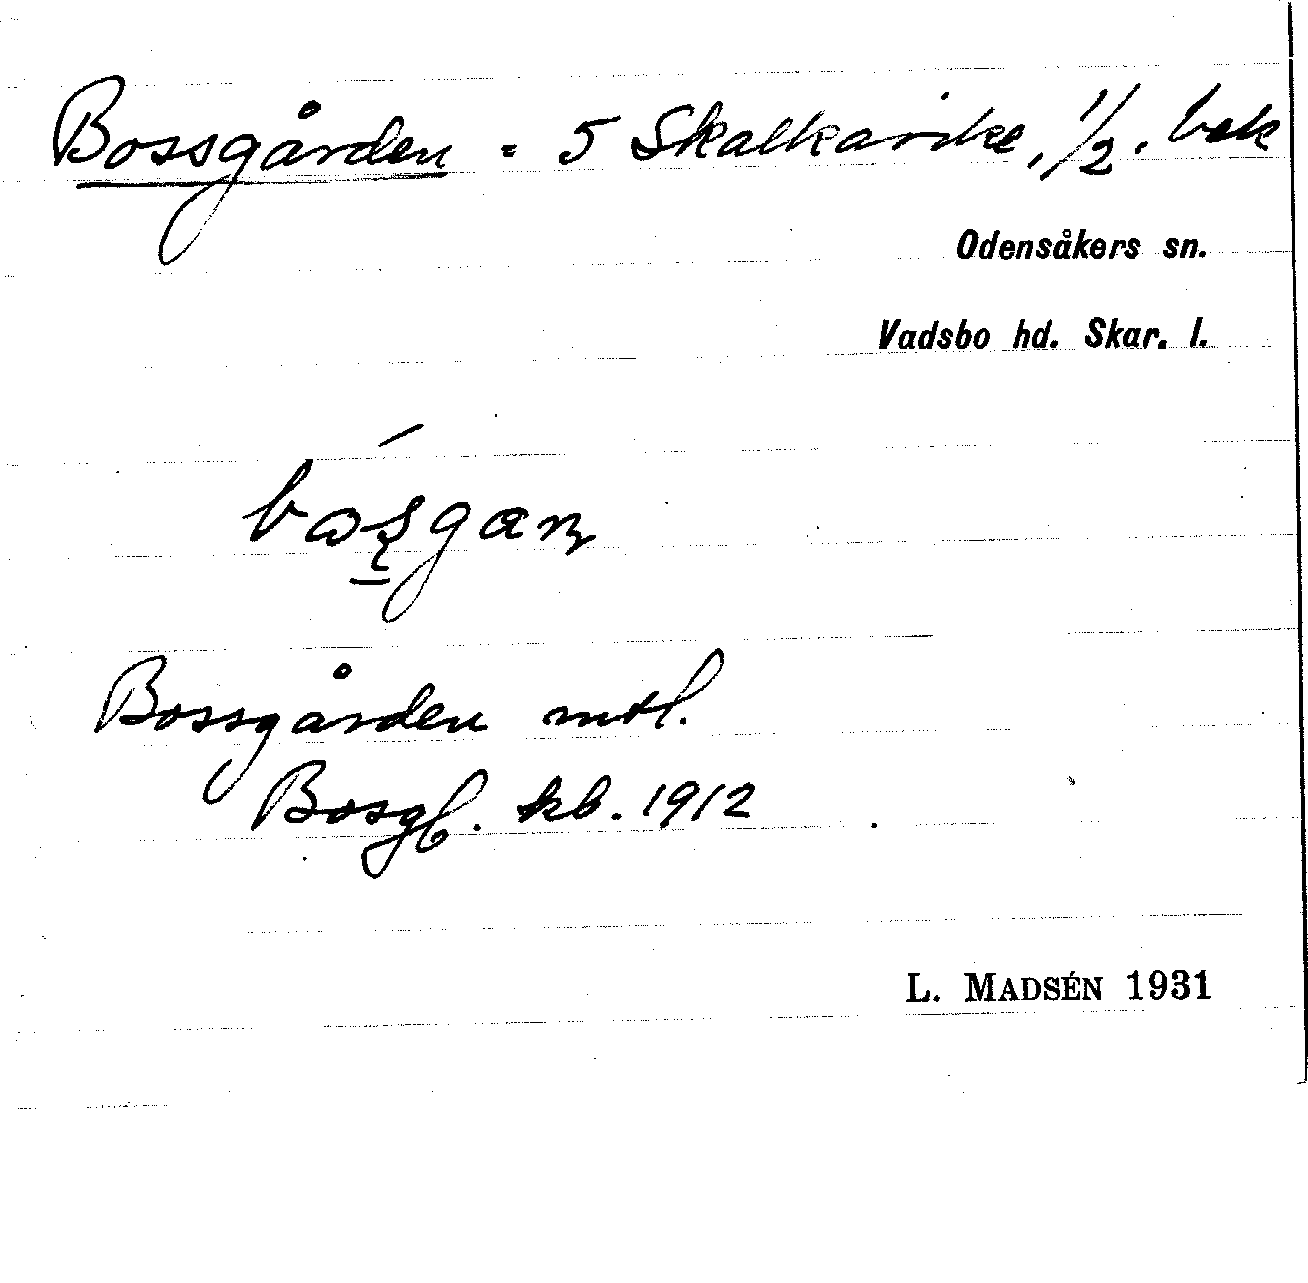 Bossgården = 5 Skalkarike, 1/2. bek
Odensåkers sn.
Vadsbo hd. Skar. l.
Bossgården mtl.
Bosg. kb. 1912
L. MADSÉN 1931